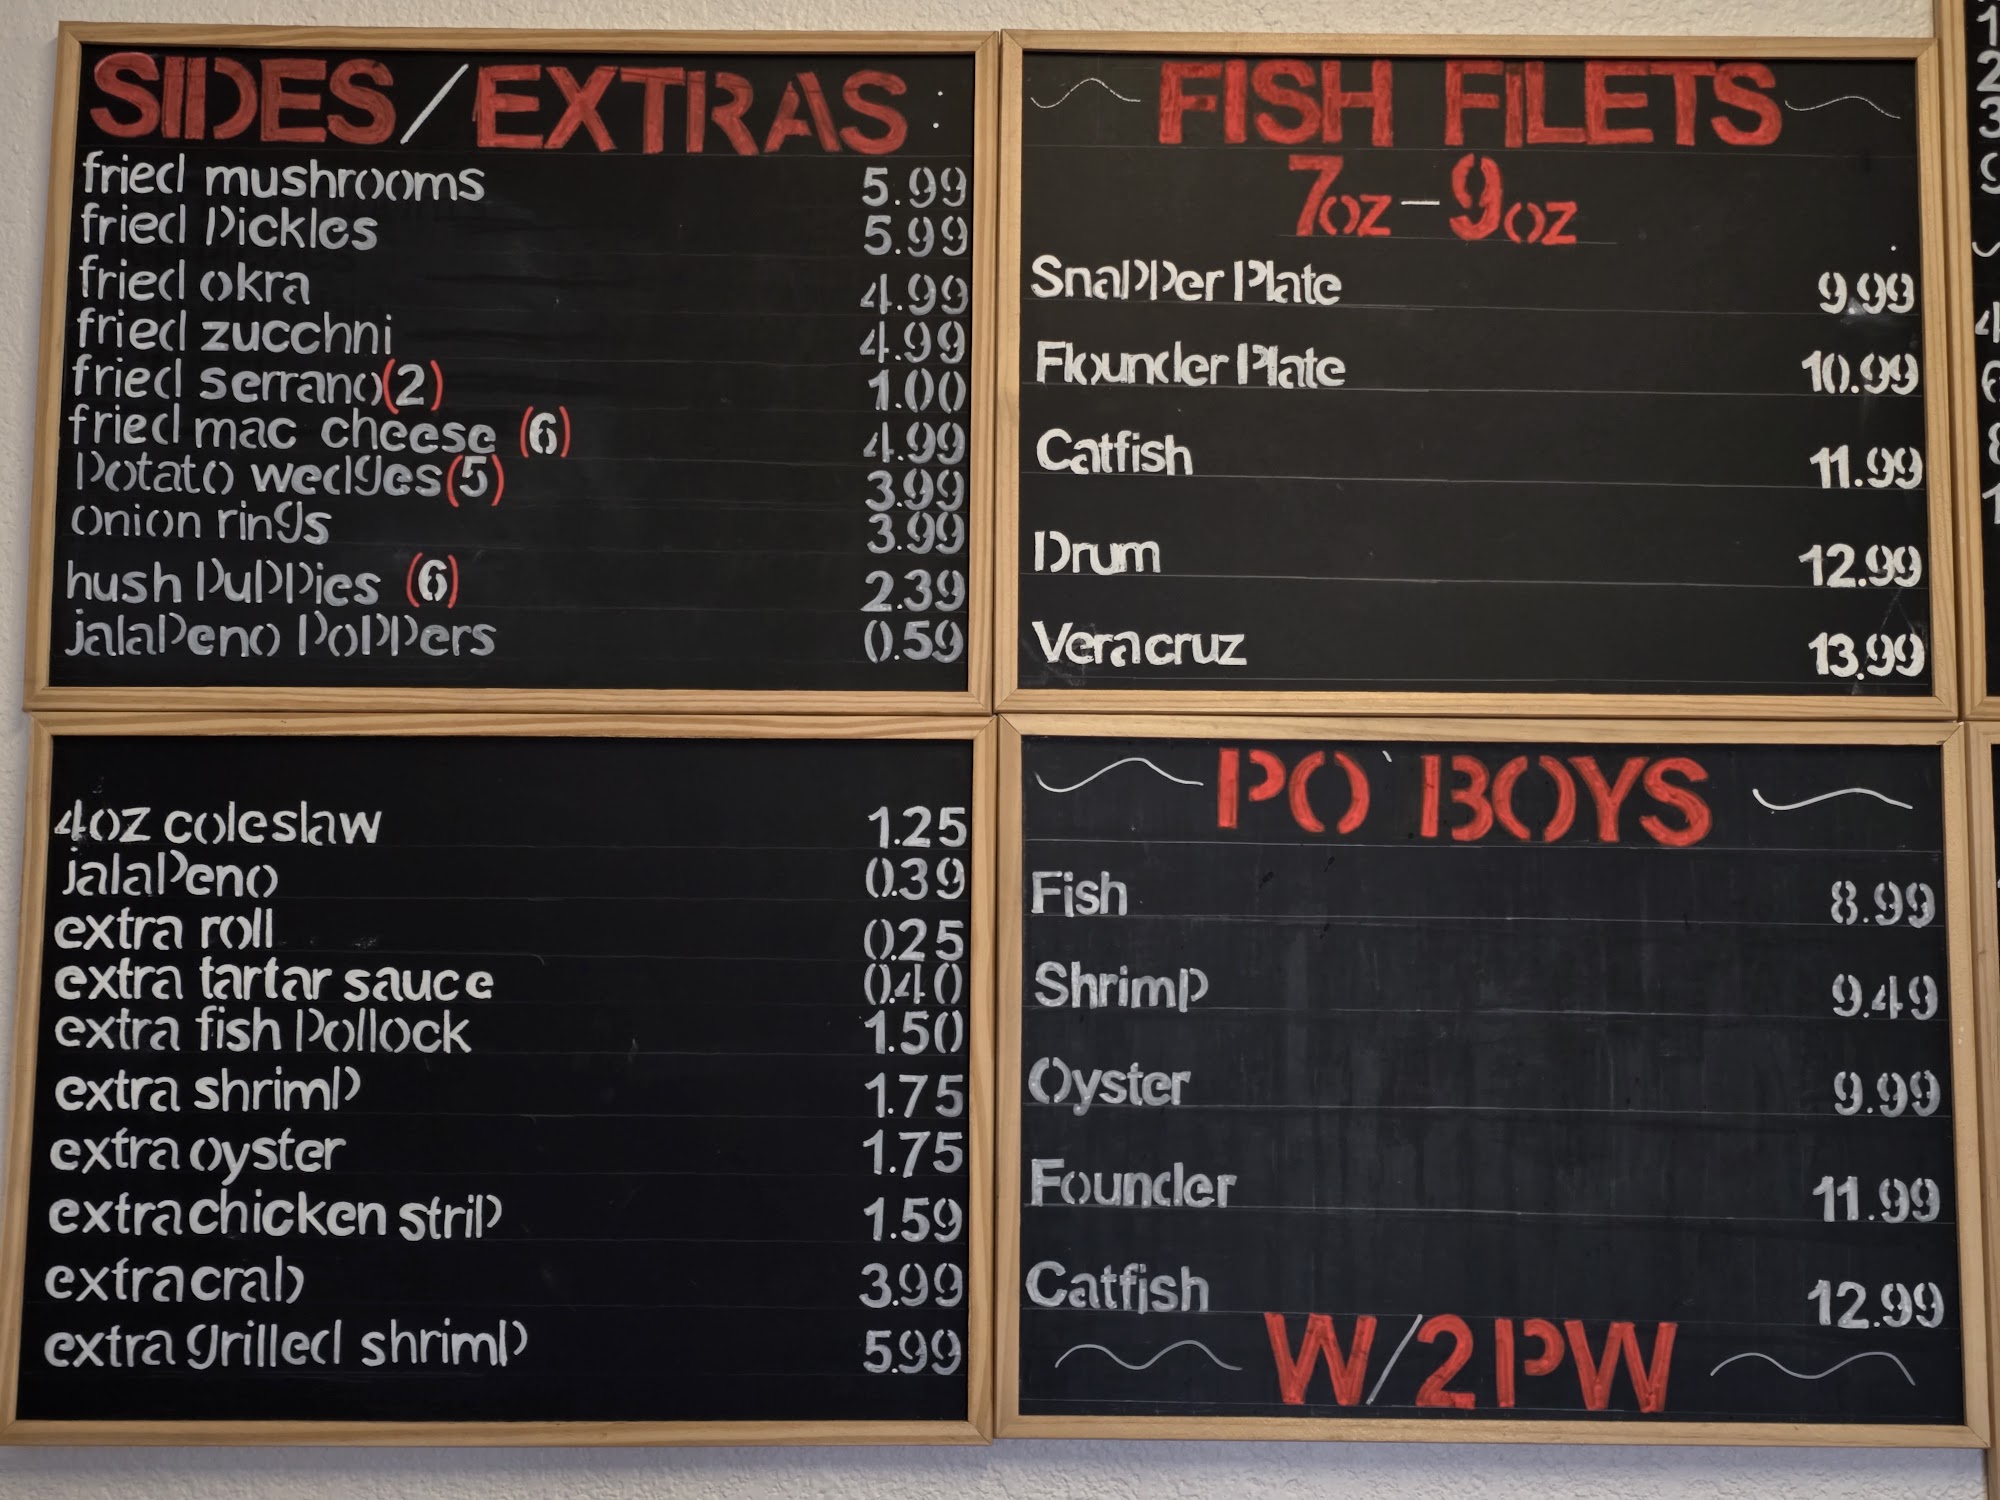 SIDES/EXTRAS:
fried mushrooms 5.99
fried Pickles 5.99
fried okra 4.99
fried zucchni 4.99
fried serrano(2) 1.00
fried mac cheese (6) 4.99
Potato wedges(5) 3.99
onion rings 3.99
hush PuPPies (6) 2.39
jalaPeno PoPPers 0.59
4oz coleslaw 1.25
jalaPeno 0.39
extra roll 0.25
extra tartar sauce 0.40
extra fish Pollock 1.50
extra shrimP 1.75
extra oyster 1.75
extra chicken striP 1.59
extra crab 3.99
extra grilled shrimP 5.99
FISH FILETS
7oz-9oz
SnaPPer Plate 9.99
Flounder Plate 10.99
Catfish 11.99
Drum 12.99
Veracruz 13.99
PO' BOYS
Fish 8.99
ShrimP 9.49
Oyster 9.99
Founder 11.99
Catfish 12.99
W/2PW